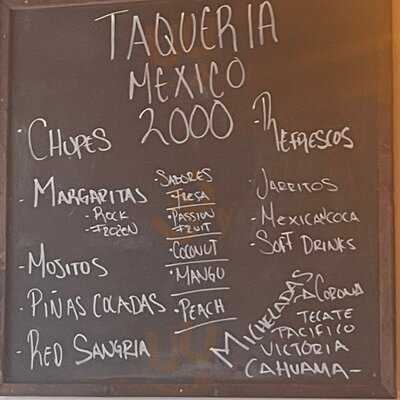 TAQUERIA
MEXICO
2000
· CHUPES
- MARGARITAS
- ROCK
- FROZEN
- MOJITOS
- PIÑAS COLADAS
- RED SANGRIA
SABORES
FRESA
· PASSION
FRUIT
· COCONUT
· MANGU
· PEACH
- REFRESCOS
- JARRITOS
- MEXICANCOCA
- SOFT DRINKS
MICHELADAS
CORONA
TECATE
PACIFICO
VICTORIA
CAHUAMA-